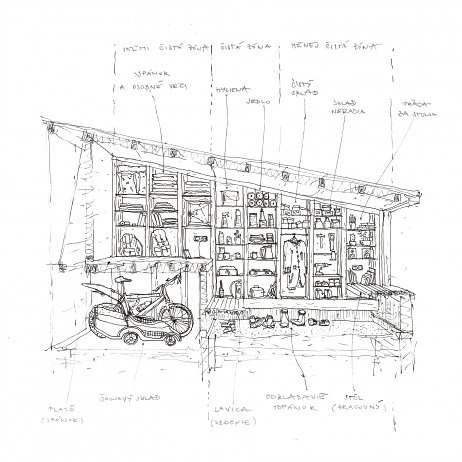 VEĽMI ČISTÁ ZÓNA
ČISTÁ ZÓNA
MENEJ ČISTÁ ZÓNA
SPÁNOK
A OSOBNÉ VECI
HYGIENA
JEDLO
ČISTÝ
SKLAD
SKLAD
NERADIA
PRÁCA
ZA STOLOM
PLATÓ
(SPÁNOK)
SKLAD
LAVICA
(SEDENIE)
ODKLADANIE
TOPÁNOK
STÔL
(PRACOVNÝ)